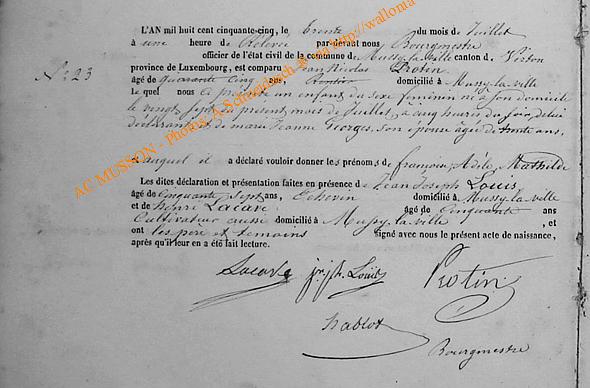 L'AN mil huit cent cinquante-cinq, le trente du mois de Juillet
à une heure de Relevée par-devant nous Bourgmestre
officier de l'état civil de la commune de Mussy-la-ville canton de Virton
N° 23
province de Luxembourg, est comparu Jean Nicolas Protin
âgé de Quarante Cinq ans, Rentier domicilié à Mussy-la-ville
Le quel nous a présenté un enfant du sexe féminin né à son domicile
le vingt sept du présent mois de Juillet, à cinq heures du soir, de lui
déclarant et de marie Jeanne Georges, son épouse âgée de trente ans,
auquel il a déclaré vouloir donner les prénoms de françoise Adèle Mathilde
Les dites déclaration et présentation faites en présence de Jean Joseph Louis,
âgé de Cinquante Sept ans, Echevin domicilié à Mussy-la-ville
et de henri Lacave âgé de Cinquante ans
Cultivateur aussi domicilié à Mussy-la-ville, et
ont les père et témoins signé avec nous le présent acte de naissance,
après qu'il leur en a été fait lecture.
Lacave jph Louis Protin
hablot
Bourgmestre
AC MUSSON - Photos: A.Schepkens & Asda http://wallonia